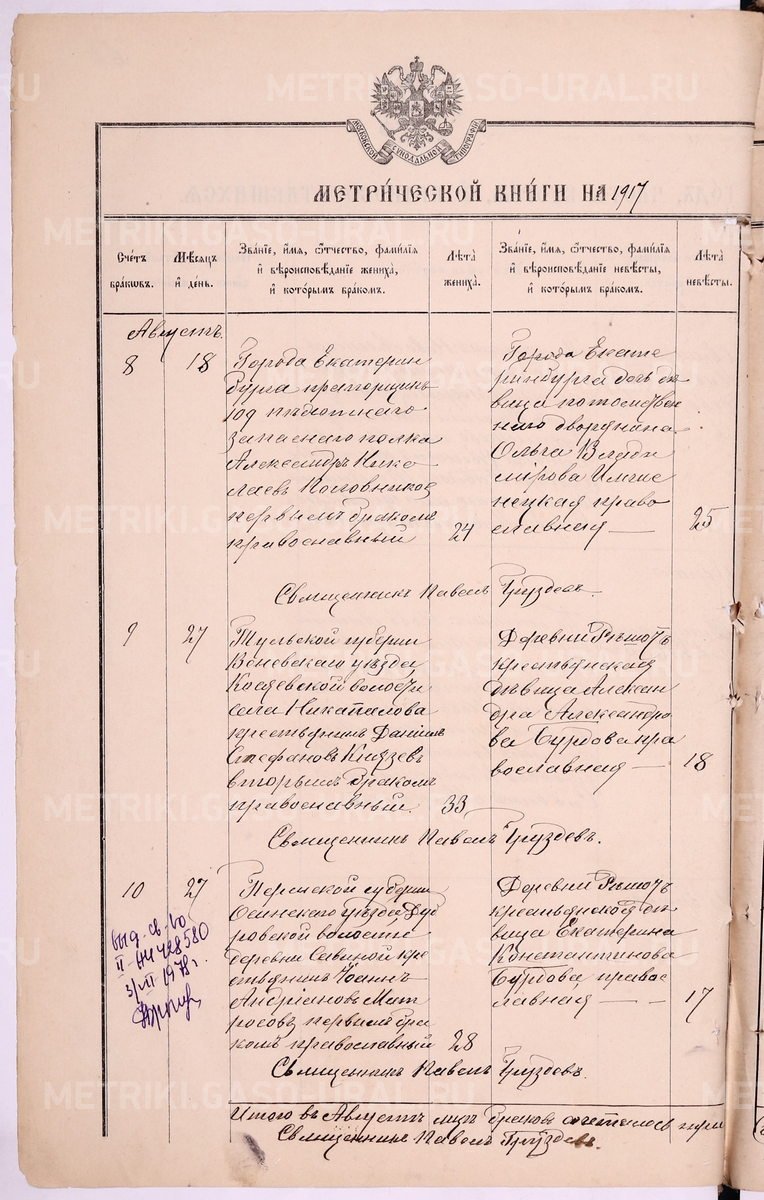 МОСКОВСКОЙ СѴНОДАЛЬНОЙ ТИПОГРАФІИ
МЕТРИ́ЧЕСКОЙ КНИ́ГИ НА 1917
Счетъ браковъ.
Мѣсяцъ и день.
Званіе, имя, отчество, фамилія и вѣроисповѣданіе жениха, и которымъ бракомъ.
Лѣта жениха.
Званіе, имя, отчество, фамилія и вѣроисповѣданіе невѣсты, и которымъ бракомъ.
Лѣта невѣсты.
Августъ.
8
18
Города Екатерин
бурга прапорщикъ
109 пѣхотнаго
запаснаго полка
Александръ Нико
лаевъ Половников
первымъ бракомъ
православный
24
Города Екате
ринбурга дочь дѣ
вица потомствен
наго дворянина
Ольга Влади
мірова
нецкая право
славная —
25
Священникъ Павелъ Груздевъ.
9
27
Тульской губерніи
Веневскаго уѣзда
волости
села
крестьянинъ Даніилъ
Стефановъ Князевъ
вторымъ бракомъ
православный.
33
Деревни Рѣшотъ
крестьянская
дѣвица Алексан
дра Александро
ва Бурдова пра
вославная —
18
Священникъ Павелъ Груздевъ.
10
27
Пермской губерніи
Осинскаго уѣзда Дуб
ровской волости
деревни Савиной кре
стьянинъ Іоаннъ
Андріановъ Мат
росовъ первымъ бра
комъ православный
28
Деревни Рѣшотъ
крестьянской дѣ
вица Екатерина
Константинова
Бурдова правос
лавная — —
17
выд. св-во
II-АИ 428580
3/VII 1978 г.
Священникъ Павелъ Груздевъ.
Итого въ Августѣ мцѣ браковъ состоялось три
Священникъ Павелъ Груздевъ.
METRIKI.GASO-URAL.RU